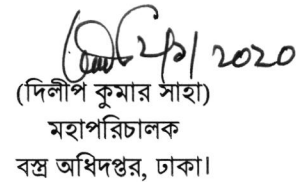 2020
(দিলীপ কুমার সাহা)
মহাপরিচালক
বস্ত্র অধিদপ্তর, ঢাকা।